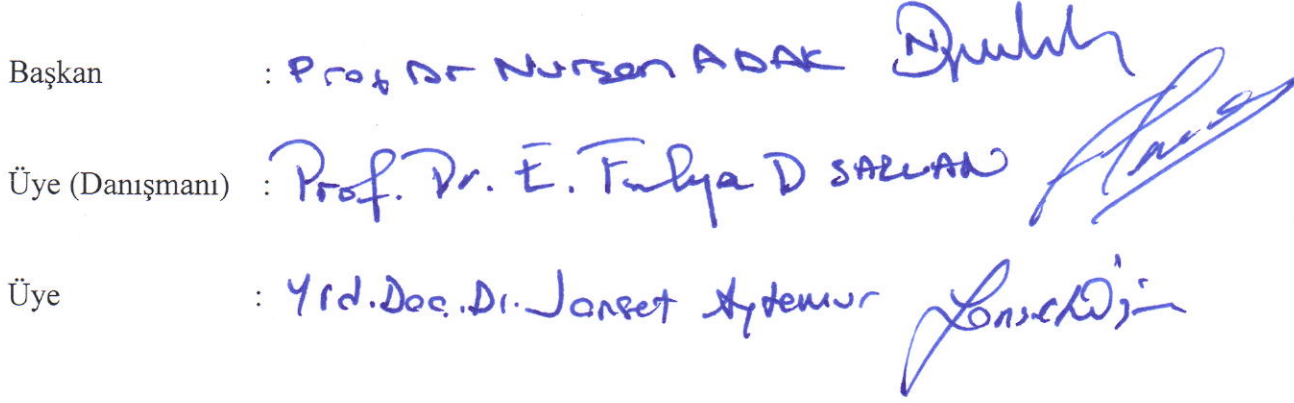 Başkan : Prof Dr Nurşen ADAK
Üye (Danışmanı) : Prof. Dr. E. Fulya D
Üye : Yrd. Doç. Dr. Janset Aytemur